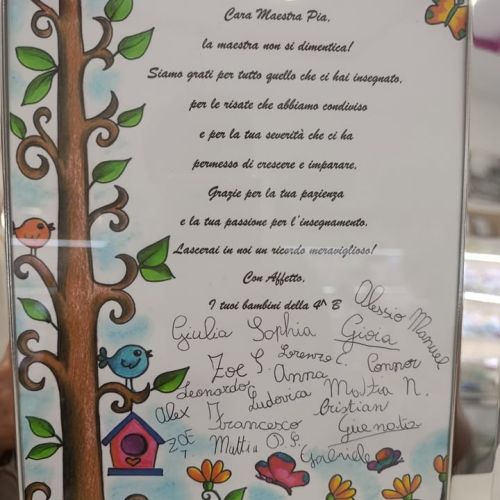 Cara Maestra Pia,
la maestra non si dimentica!
Siamo grati per tutto quello che ci hai insegnato,
per le risate che abbiamo condiviso
e per la tua severità che ci ha
permesso di crescere e imparare.
Grazie per la tua pazienza
e la tua passione per l'insegnamento.
Lascerai in noi un ricordo meraviglioso!
Con Affetto,
I tuoi bambini della 4^ B
Alessio Manuel
Giulia Sophia Gioia
Zoe S. Lorenzo C. Connor
Leonardo Anna
Ludovica Mattia N.
Alex Cristian
Francesco
Zoe T Mattia D.
Gabriele